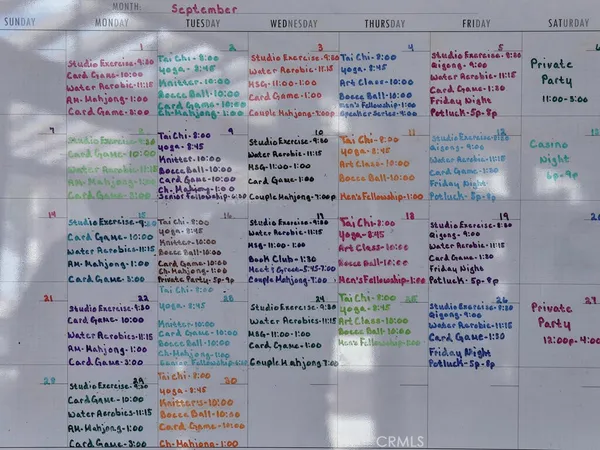 MONTH: September
SUNDAY MONDAY TUESDAY WEDNESDAY THURSDAY FRIDAY SATURDAY
1
Studio Exercise-9:30
Card Game-10:00
Water Aerobics-11:15
AM-Mahjong-1:00
Card Game-3:00
2
Tai Chi-8:00
Yoga-8:45
Knitter-10:00
Bocce Ball-10:00
Card Game-10:00
Ch-Mahjong-1:00
3
Studio Exercise-9:30
Water Aerobic-11:15
HSG-11:00-1:00
Card Game-1:00
Couple Mahjong-7:00p
4
Tai Chi-8:00
Yoga-8:45
Art Class-10:00
Bocce Ball-10:00
Men's Fellowship-1:00
Speaker Series-
5
Studio Exercise-9:30
Qigong-9:00
Water Aerobics-11:15
Card Game-1:30
Friday Night
Potluck-5p-8p
6
Private
Party
11:00-3:00
7
8
Studio Exercise-9:30
Card Game-10:00
Water Aerobics-11:15
AM-Mahjong-1:00
Card Game-3:00
9
Tai Chi-8:00
Yoga-8:45
Knitter-10:00
Bocce Ball-10:00
Card Game-10:00
Ch-Mahjong-1:00
Senior Fellowship-6:30
10
Studio Exercise-9:30
Water Aerobic-11:15
HSG-11:00-1:00
Card Game-1:00
Couple Mahjong-7:00p
11
Tai Chi-8:00
Yoga-8:45
Art Class-10:00
Bocce Ball-10:00
Men's Fellowship-1:00
12
Studio Exercise-
Qigong-9:00
Water Aerobics-11:15
Card Game-1:00
Friday Night
Potluck-5p-8p
Casino
Night
6p-9p
14
15
Studio Exercise-9:30
Card Game-10:00
Water Aerobics-11:15
AM-Mahjong-1:00
Card Game-3:00
16
Tai Chi-8:00
Yoga-8:45
Knitter-10:00
Bocce Ball-10:00
Card Game-10:00
Ch-Mahjong-1:00
Private Party-5p-9p
Studio Exercise-9:30
Water Aerobic-11:15
HSG-11:00-1:00
Book Club-1:30
Meet & Greet-5:45-7:00
Couple Mahjong-7:00
18
Tai Chi-8:00
Yoga-8:45
Art Class-10:00
Bocce Ball-10:00
Men's Fellowship-1:00
19
Studio Exercise-9:30
Qigong-9:00
Water Aerobics-11:15
Card Game-1:30
Friday Night
Potluck-5p-8p
21
22
Studio Exercise-9:30
Card Game-10:00
Water Aerobics-11:15
AM-Mahjong-1:00
Card Game-3:00
Tai Chi-8:00
Yoga-8:45
Knitter-10:00
Card Game-10:00
Bocce Ball-10:00
Ch-Mahjong-1:00
24
Studio Exercise-9:30
Water Aerobics-11:15
HSG-11:00-1:00
Card Game-1:00
Couple Mahjong
25
Tai Chi-8:00
Yoga-8:45
Art Class-10:00
Bocce Ball-10:00
Men's Fellowship-1:00
26
Studio Exercise-9:30
Qigong-9:00
Water Aerobic-11:15
Card Game-1:30
Friday Night
Potluck-5p-8p
27
Private
Party
12:00p-4:00
29
Studio Exercise-9:30
Card Game-10:00
Water Aerobics-11:15
AM-Mahjong-1:00
Card Game-3:00
30
Tai Chi-8:00
Yoga-8:45
Knitter's-10:00
Bocce Ball-10:00
Card Game-10:00
Ch-Mahjong-1:00
CRMLS